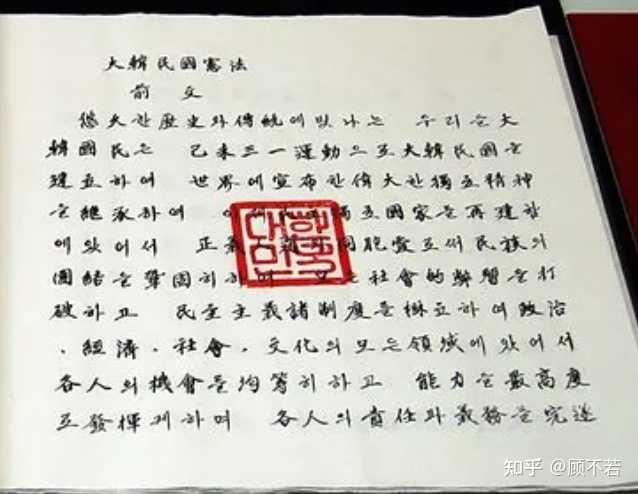 大韓民國憲法
前文
悠久한 歷史와 傳統에 빛나는 우리들 大
韓國民은 己未三一運動으로 大韓民國을
建立하여 世界에 宣布한 偉大한 獨立精神
을 繼承하여 이제 民主獨立國家를 再建함
에 있어서 正義人道와 同胞愛로써 民族의
團結을 鞏固히하며 모든 社會的 弊習을 打
破하고 民主主義諸制度를 樹立하여 政治
, 經濟, 社會, 文化의 모든 領域에 있어서
各人의 機會를 均等히하고 能力을 最高度
로 發揮케하며 各人의 責任과 義務를 完遂
대한
민국
知乎 @顾不若